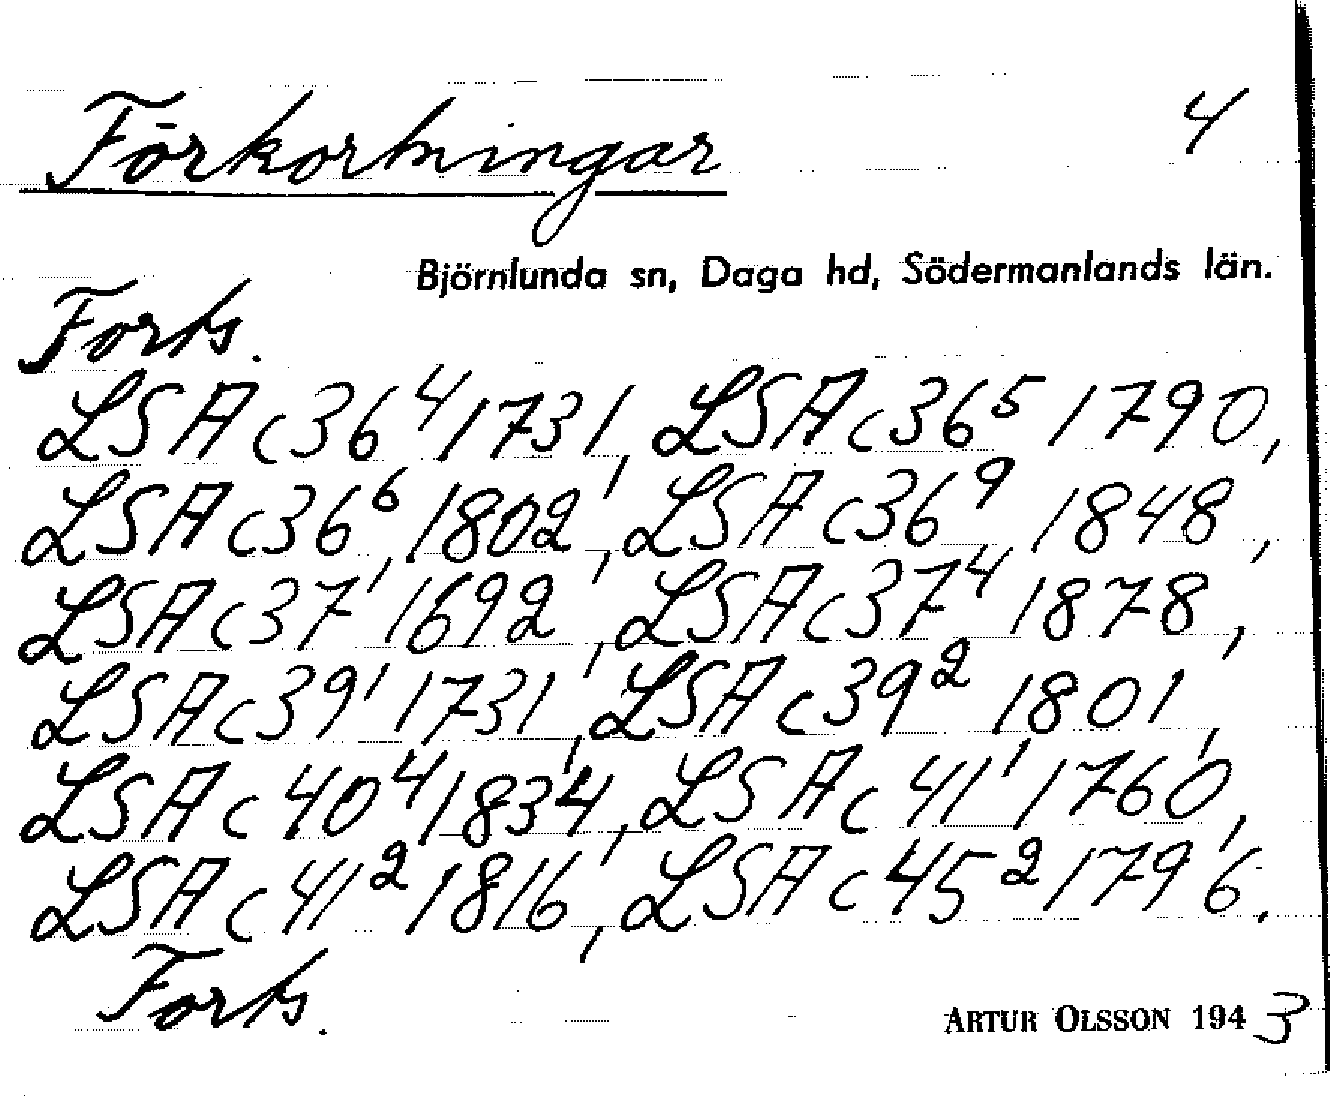 Förkortningar 4
Björnlunda sn, Daga hd, Södermanlands län.
Forts.
LSA c36⁴ 1731, LSA c36⁵ 1790,
LSA c36⁶, 1802, LSA c36⁹ 1848,
LSA c37¹ 1692, LSA c37⁴ 1878,
LSA c39¹ 1731, LSA c39² 1801,
LSA c 40⁴ 1834, LSA c 41¹ 1760,
LSA c 41² 1816, LSA c 45² 1796.
Forts.
ARTUR OLSSON 1943